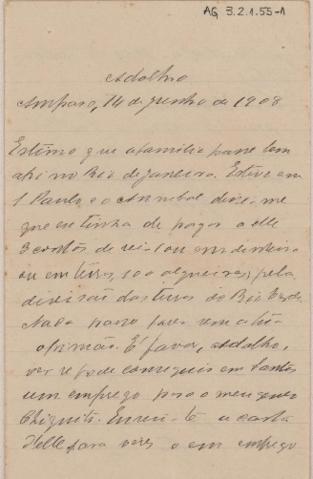 AG 3.2.1.55-1
Adolho
Amparo, 14 de junho de 1908
Estimo que a familia passe bem
ahi no Rio de Janeiro. Estive em
S. Paulo e o Annibal disse-me
que eu tinha de pagar a elle
3 contos de reis ou em dinheiro
ou em terras, 100 alqueires, pela
divisão das terras do Rio
Nada posso fazer sem a tua
opinião. É favor, Adolho,
ver se pode conseguir em Santos
um emprego para o meu genro
Chiquito. Envio-te a carta
delle para veres o em emprego